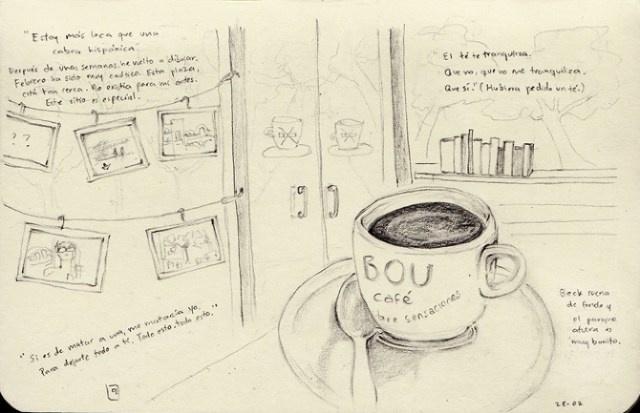 "Estoy más loca que una
cabra hispánica"
Después de unas semanas, he vuelto a dibujar.
Febrero ha sido muy caótico. Esta plaza,
está tan cerca. No existía para mí antes.
Este sitio es especial.
El té te tranquiliza.
Que no, que no me tranquiliza.
Que sí! (Hubiera pedido un té.)
??
BOU
BOU
BOU
café
sensaciones
"Si es de matar a una, me mataría yo.
Para dejarte todo a ti. Todo esto, todo esto."
Beck suena
de fondo y
el parque
afuera es
muy bonito.
28-02